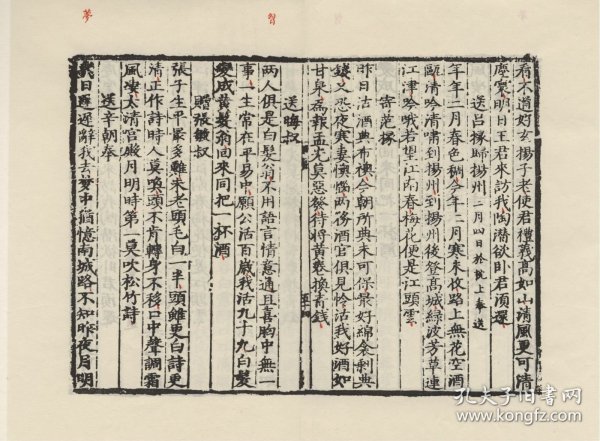 看不道好玄揚子老使君禮義高如山清風更可清
塵寰明日王君來訪我陶潛欲卧君須還
送呂掾歸揚州二月四日於就上奉送
年年二月春色稠今年二月寒未收路上無花空酒
甌清吟清嘯到揚州到揚州後登高城綠波芳草連
江津吟哦若望江南春梅花便是江頭雪
寄范掾
昨日沽酒典布襖今朝所典未可保最好綿衾剩典
錢又恐夜寒妻懊惱兩務酒官俱見怜沽我好酒如
甘泉為報孟光莫惡發待將黃卷換青錢
送晦叔
兩人俱是白髮翁不用語言情意通且喜胸中無一
事一生常在平易中願公沽百歲我沽九十九白髮
變成黃髮翁回來同把一杯酒
贈張徽叔
張子生平最多難朱老頭毛白一半頭雖更白詩更
清正作詩時人莫喚頭不肯轉身不移口中聲調霜
風淒太清宮殿月明時第一莫吹松竹詩
送辛朝奉
日遲遲辭我去夢中猶憶南城路不知昨夜月明
孔夫子旧书网
www.kongfz.com